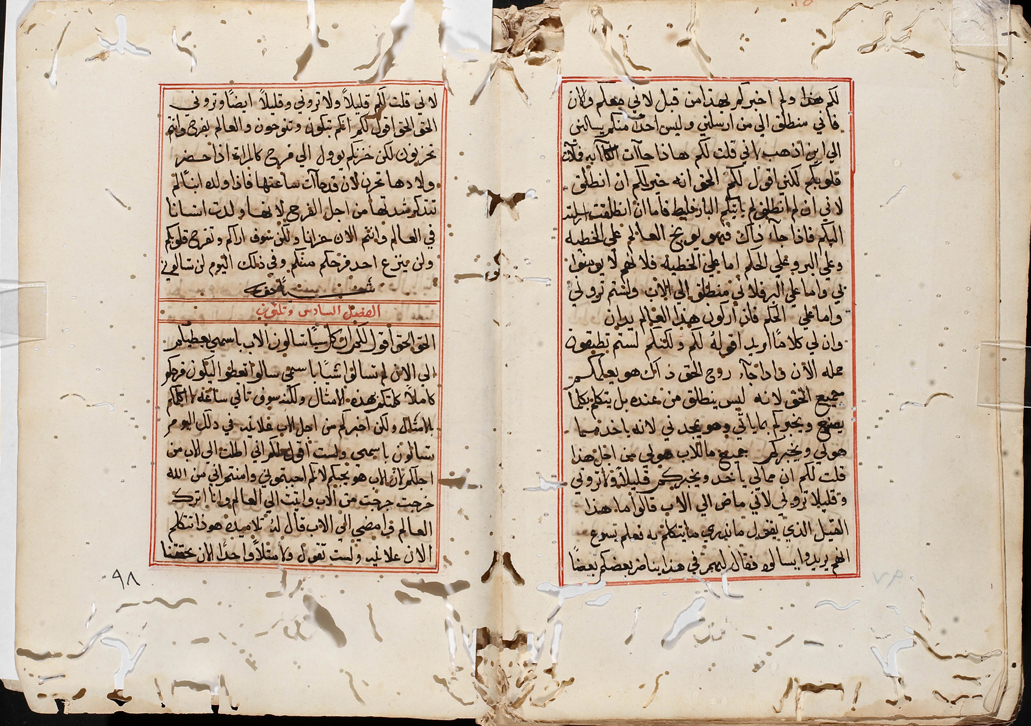 لكم هذا ولم اخبركم بهذا من قبل لاني معكم وكان
فاني منطلق الي من ارسلني وليس احد منكم يسالني
الي اين اذهب لاني قلت لكم هاذا جآت الكآبه فملآت
قلوبكم لكني اقول لكم الحق انه خير لكم ان انطلق
لاني ان لم انطلق لم ياتيكم البارقليط فاما ان انطلقت ارسلته
اليكم فاذا جآ ذاك فهو يوبخ العالم علي الخطيه
وعلي البر وعلي الحكم اما علي الخطيه فلانهم لا يومنوا
بي واما علي البر فلاني منطلق الي الاب ولستم تروني
واما علي الحكم فان اركون هذا العالم يدان
وان لي كلامًا اريد اقوله لكم ولكنكم لستم تطيقون
حمله الآن واذا جآء روح الحق ذاك هو يعلمكم
جميع الحق لانه ليس ينطق من عنده بل يتكلم بكلما
يسمع ويخبركم بماياتي وهو يمجدني لانه ياخذ مما
هو لي ويخبركم جميع ما للاب هو لي من اجل هذا
قلت لكم ان مما لي ياخذ ويخبركم قليلًا ولا تروني
وقليلا تروني لاني ماض الي الاب قالوا ما هذا
القليل الذي يقول ما ندري ما يتكلم به فعلم يسوع
انهم يريدوا يسالوه فقال لهم في هذا يناظر بعضكم بعضًا
٧٩
لاني قلت لكم قليلًا ولا تروني وقليلًا ايضًا وتروني
الحق الحق اقول لكم انكم تبكون وتنوحون والعالم يفرح وانتم
تحزنون لكن حزنكم يوول الي فرح كالمراة اذا حضر
ولادها تحزن لان قد جآت ساعتها فاذا ولدت ابنًا لم
تتذكر شدتها من اجل الفرح لانها ولدت انسانا
في العالم وانتم الان حزانا ولكن سوف اراكم وتفرح قلوبكم
ولن ينزع احد فرحكم منكم وفي ذلك اليوم لن تسالوني
الفصل السادس وتلتون
الحق الحق اقول لكم ان كل شيًا تسالون الاب باسمي يعطيكم
الي الان لم تسالوا شيًا باسمي سالوا تعطوا ليكون فرحكم
كاملًا كلمتكم بهذه الامثال ولكن سوف تاتي ساعه لا اكلمكم
بالامثال ولكن اخبركم من اجل الاب علانيه في ذلك اليوم
تسالون باسمي ولست اقول لكم اني اطلب الي الاب من
اجلكم لان الاب هو يحبكم لانكم احببتموني وامنتم اني من الله
خرجت خرجت من الاب واتيت الي العالم وانا اترك
العالم وامضي الي الاب قال له تلاميده هوذا تتكلم
الان علانيه ولست تقول ولا مثلًا واحدًا الان تحققنا
٩٨